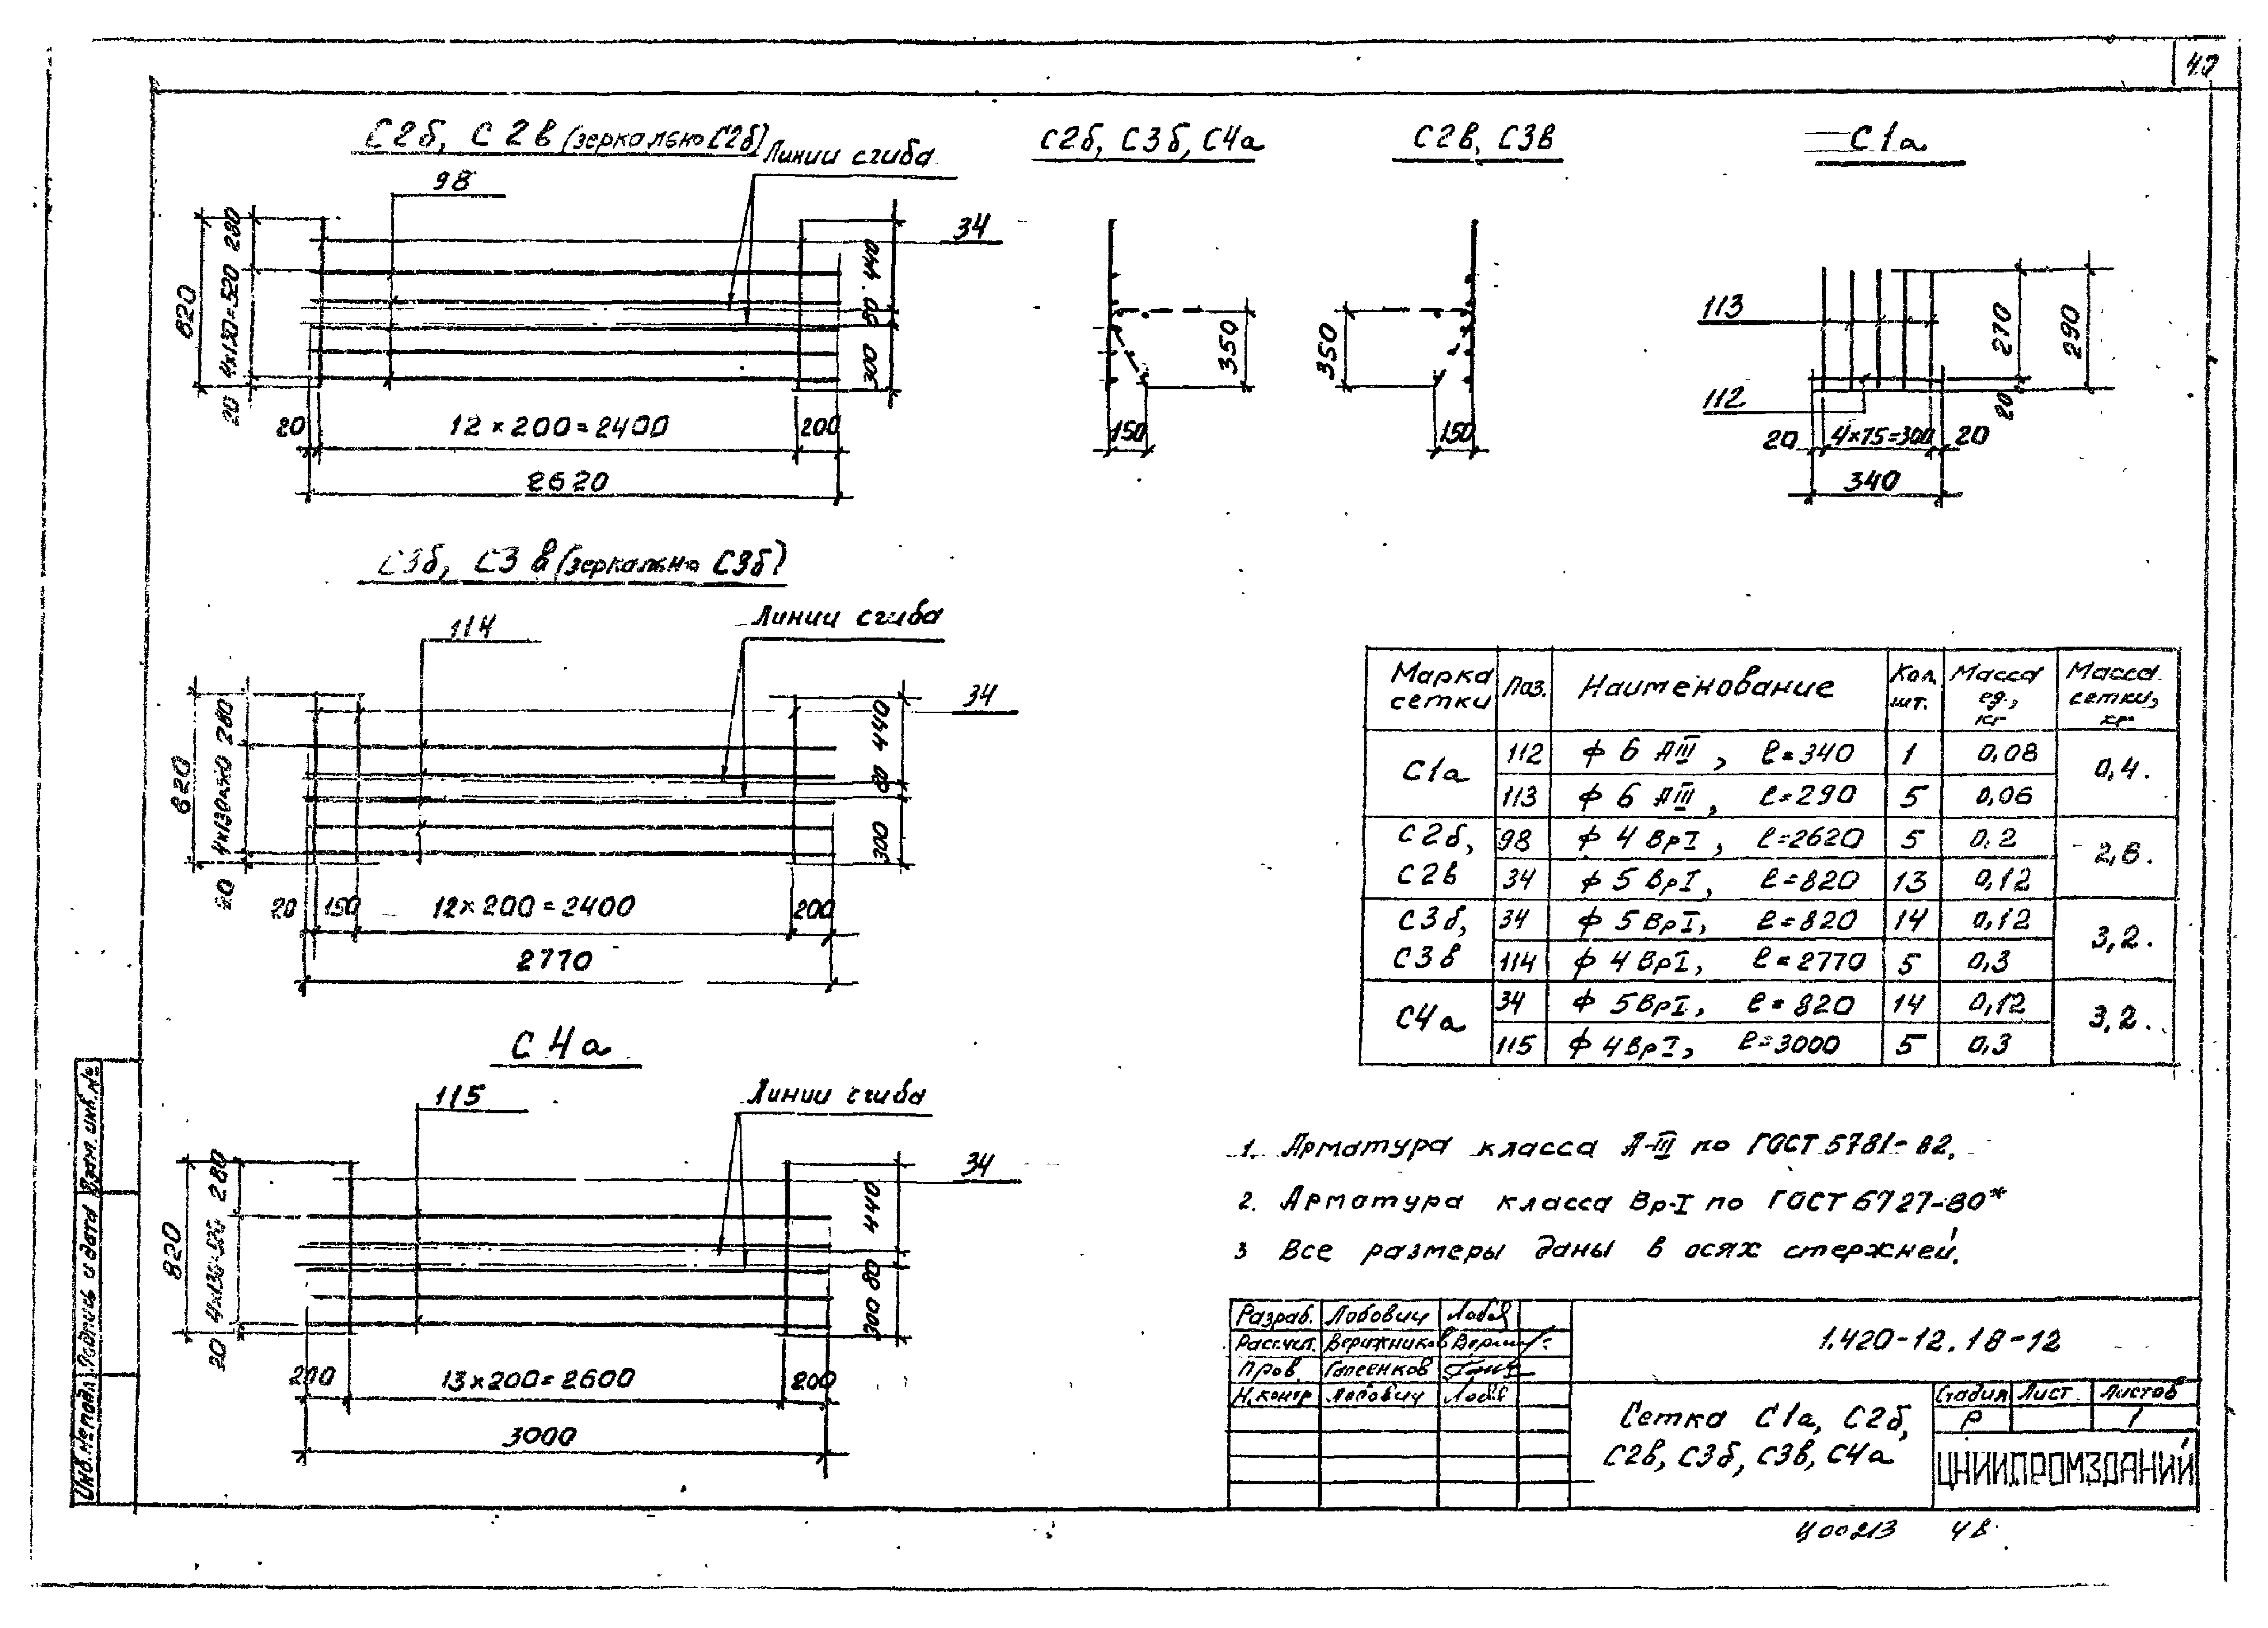 С2б, С2в (зеркально С2б)
Линии сгиба
98
34
820
280
4×130=520
20
440
80
300
20
12×200=2400
200
2620
С2б, С3б, С4а
350
150
С2в, С3в
350
150
С1а
113
112
270
290
20
20
4×75=300
20
340
С3б, С3в (зеркально С3б)
Линии сгиба
114
34
820
280
4×130=520
20
440
80
300
20
150
12×200=2400
200
2770
С4а
Линии сгиба
115
34
820
280
4×130=520
20
440
80
300
200
13×200=2600
200
3000
Марка сетки Поз. Наименование Кол. шт. Масса ед., кг Масса сетки, кг
С1а 112 ф 6 АIII, l=340 1 0,08 0,4.
113 ф 6 АIII, l=290 5 0,06
С2б, 98 ф 4 ВрI, l=2620 5 0,2 2,6.
С2в 34 ф 5 ВрI, l=820 13 0,12
С3б, 34 ф 5 ВрI, l=820 14 0,12 3,2.
С3в 114 ф 4 ВрI, l=2770 5 0,3
С4а 34 ф 5 ВрI, l=820 14 0,12 3,2.
115 ф 4 ВрI, l=3000 5 0,3
1. Арматура класса А-III по ГОСТ 5781-82.
2. Арматура класса Вр-I по ГОСТ 6727-80*
3 Все размеры даны в осях стержней.
Разраб. Лобович
Рассчит. Верижников
Пров. Гапеенков
Н.контр Лобович
1.420-12.18-12
Сетка С1а, С2б,
С2в, С3б, С3в, С4а
Стадия Лист. Листов
Р 1
ЦНИИПРОМЗДАНИЙ
Инв.№подл. Подпись и дата Взам.инв.№
Ц00213